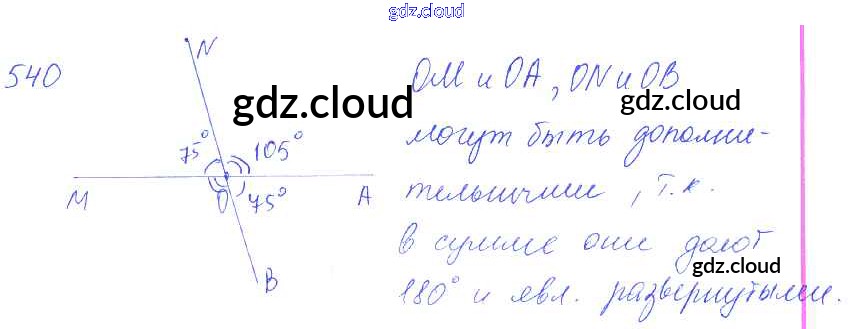 gdz.cloud
540
N
75° 105°
M O 75° A
B
ОМ и ОА, ОN и ОВ
могут быть дополни-
тельными, т.к.
в сумме они дают
180° и явл. развернутыми.
gdz.cloud
gdz.cloud
gdz.cloud